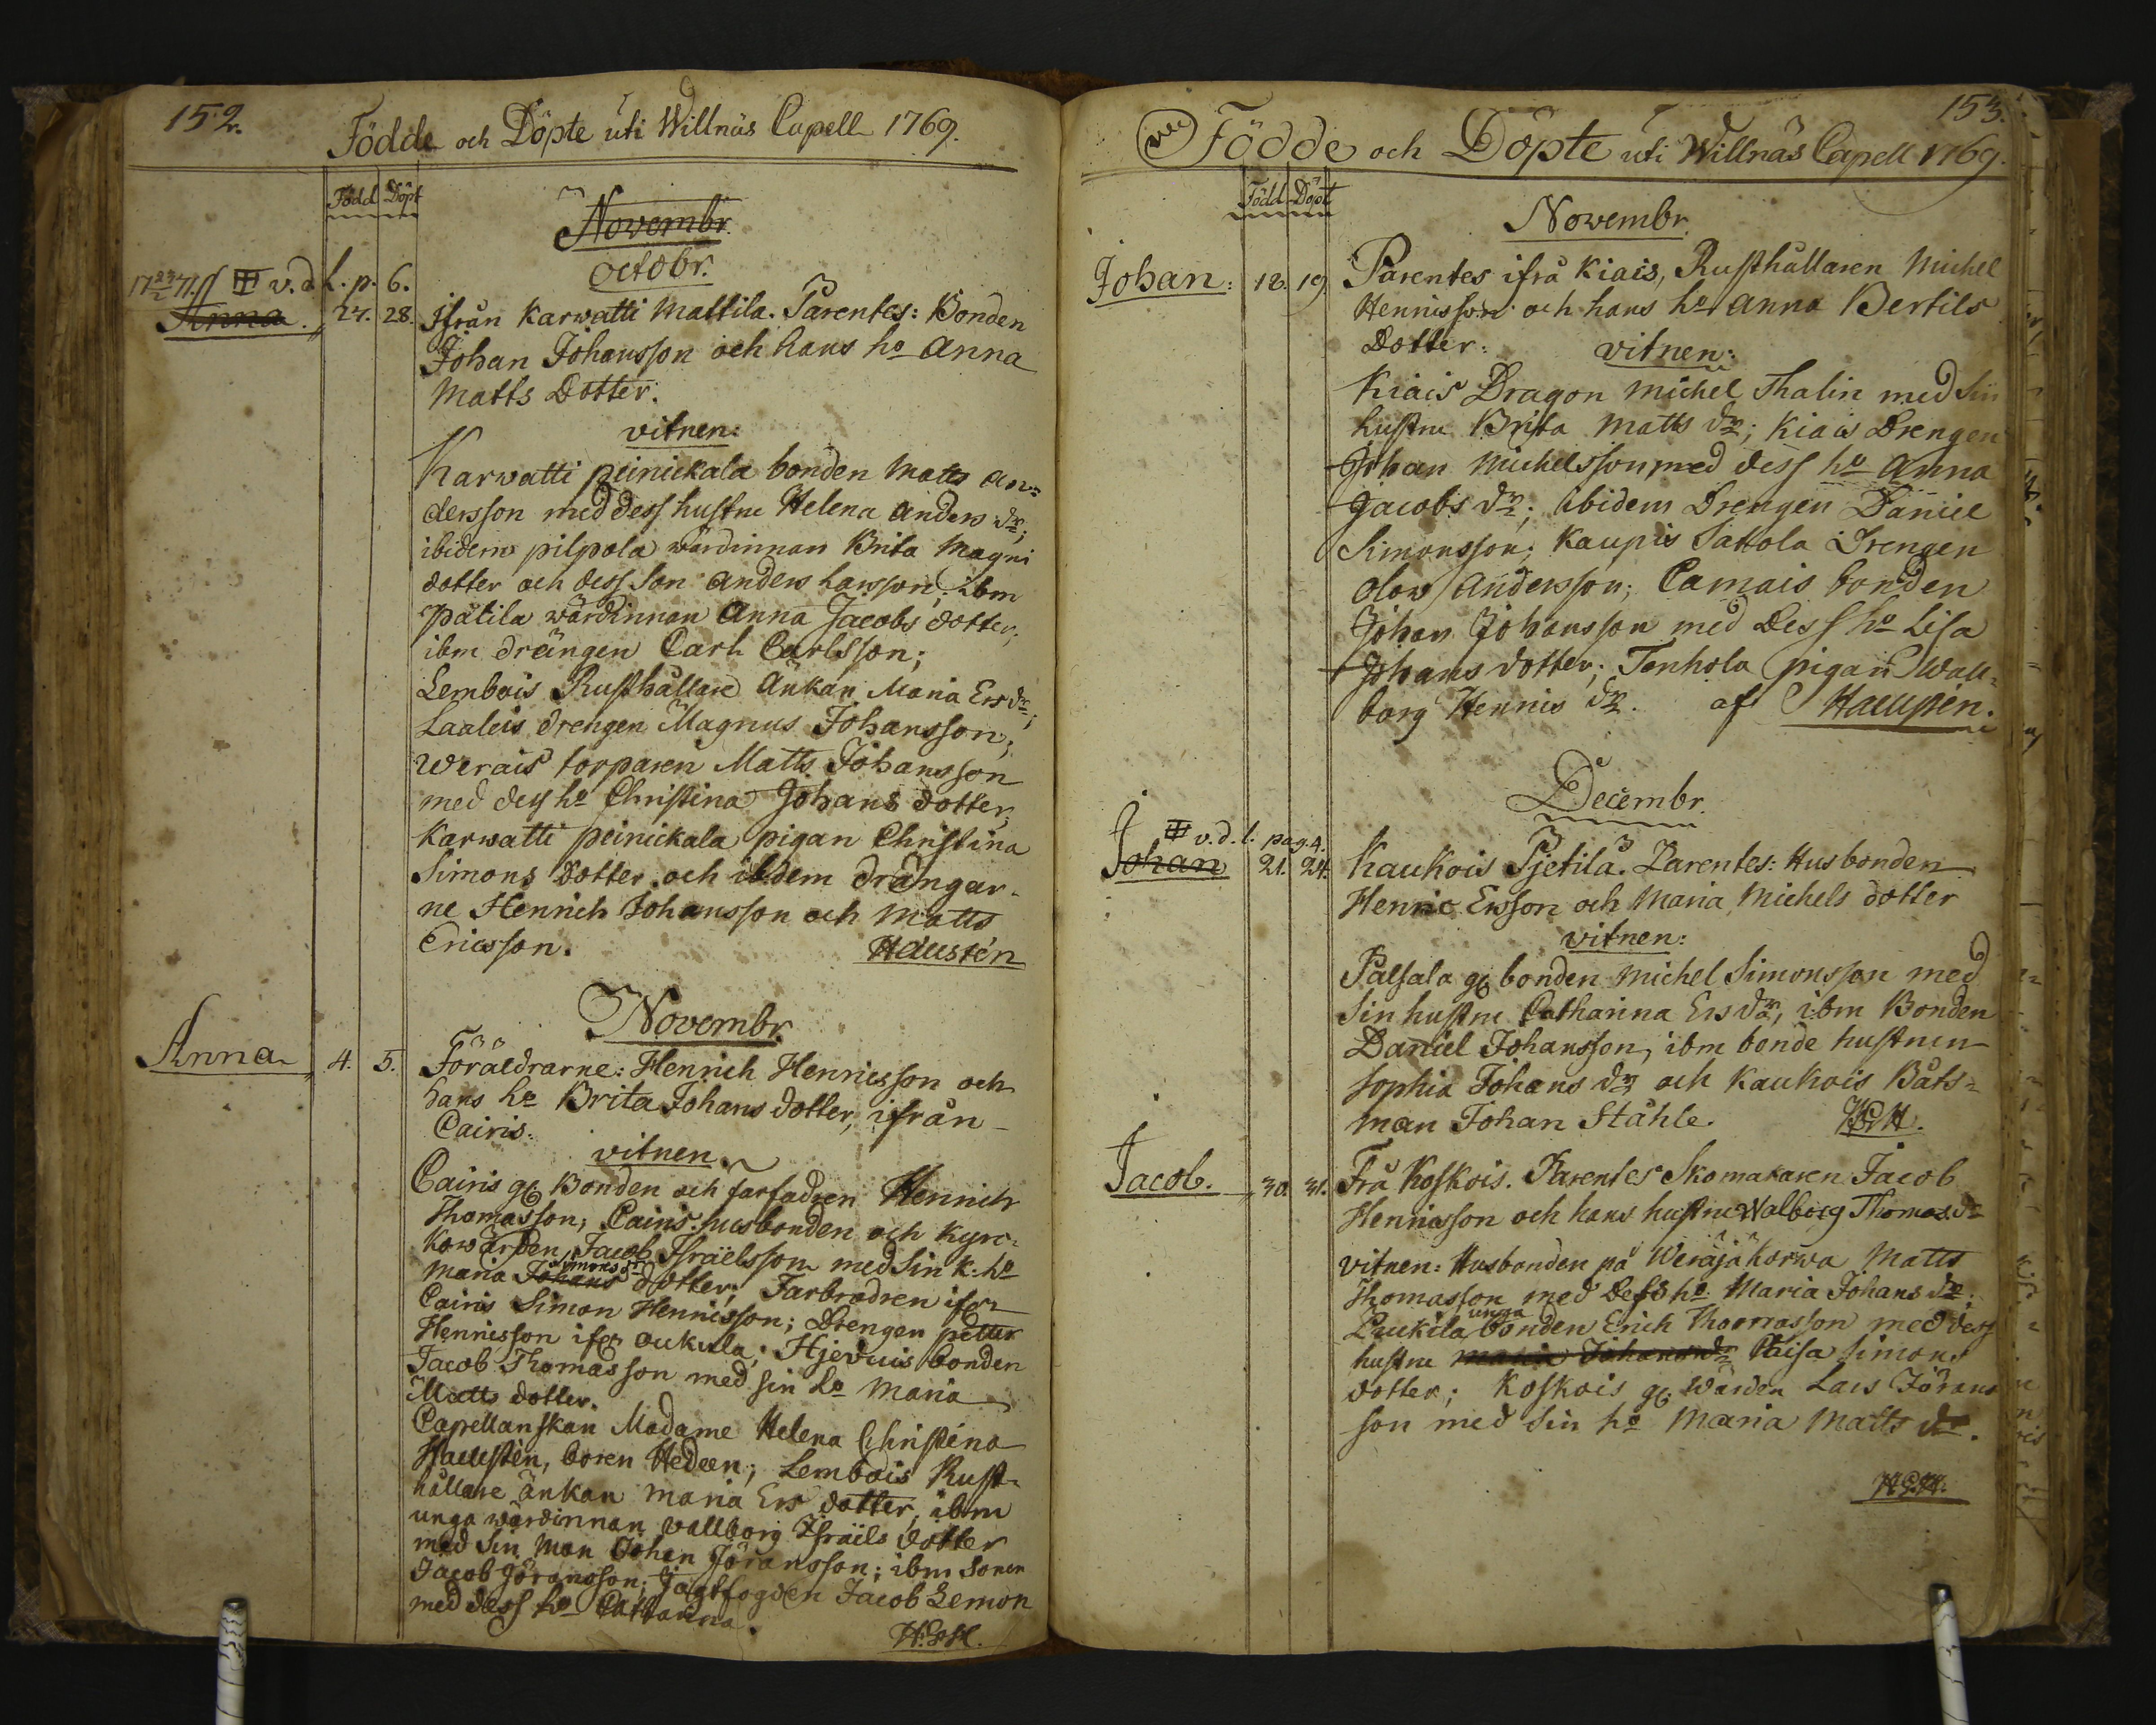 152.
Födde och Döpte uti Willnäs Capell 1769.
Född Döpt
Novembr.
octobr.
v. d. l. p. 6.
Anna 27. 28. Ifrån Karwatti Mattila. Parentes: Bonden
Johan Johansson och hans ho Anna
Matts Dotter.
vitnen:
Karwatti peinickala bonden Matts An=
dersson med dess hustru Helena Anders dr;
ibidem pilpola wärdinnan Brita Magni
dotter och dess Son Anders Larsson; ibm
Pätila wärdinnan Anna Jacobs dotter,
ibm drängen Carl Carlsson;
Lembois Rusthållare Änkan Maria Ers dr;
Laaleis drengen Magnus Johansson;
Werais torparen Matts Johansson
med dess ho Christina Johans dotter;
Karwatti peinickala pigan Christina
Simons Dotter och ibdem drängar-
ne Henrich Johansson och Matts
Ericsson. Haustén
Novembr.
Anna 4. 5. Föräldrarne: Henrich Henricsson och
hans ho Brita Johans dotter, ifrån
Cairis.
vitnen.
Cairis gl Bonden och farfadren Henrich
Thomasson; Cairis husbonden och Kyrc-
kowärden Jacob Israëlsson med sin k: ho
Simons dr
Maria Johans dotter; Farbrodren ifr
Cairis Simon Hennisson; Drengen petter
Hennisson ifr oukula; Hjevuis bonden
Jacob Thomasson med sin ho Maria
Matts dotter.
Capellanskan Madame Helena Christina
Haustén, boren Hedeen; Lembois Rust-
hållare änkan Maria Ers dotter, ibm
unga wärdinnan vallborg Israils dotter
med Sin Man Johan Jöransson; ibm Sonen
Jacob Jöransson; Jagtfogden Jacob Lemon
med dess ho Catharina.
153.
Födde och Döpte uti Willnäs Capell 1769.
Född Döpt
Novembr.
Johan: 18. 19. Parentes ifrå Kiais, Rusthållaren Michel
Hennisson och hans ho Anna Bertils
Dotter: vitnen:
Kiais Dragon Michel Thalin med Sin
hustru Brita Matts dr; Kiais Drengen
Johan Michelsson med dess ho Anna
Jacobs dr; ibidem Drengen Daniel
Simonsson; Kaupis Sattola Drengen
Olow Andersson; Camais bonden
Johan Johansson med Dess ho Lisa
Johans dotter; Tenhola pigan Wall=
borg Hennis dr. af Haustén.
Decembr.
v. d. l. pag. 4.
Johan 21. 24. Kaukois Pjetilä. Parentes: Husbonden
Henric Ersson och Maria Michels dotter
vitnen:
Palsala gl bonden Michel Simonsson med
Sin hustru Catharina Ers dr, ibm Bonden
Daniel Johansson, ibm bonde hustrun
Sophia Johans dr och Kaukois Båts=
man Johan Ståhle.
Jacob. 30. 31. Frå Koskois. Parentes Skomakaren Jacob
Hennisson och hans hustru Walborg Thomas dr
vitnen: Husbonden på Weräjäkorwa Matts
Thomasson med Dess ho Maria Johans dr;
unga
Luukila bonden Erich Thomasson med dess
hustru Maria Johans dr Caisa Simons
dotter; Koskois gl. Wärden Lars Jörans
son med Sin ho Maria Matts dr.